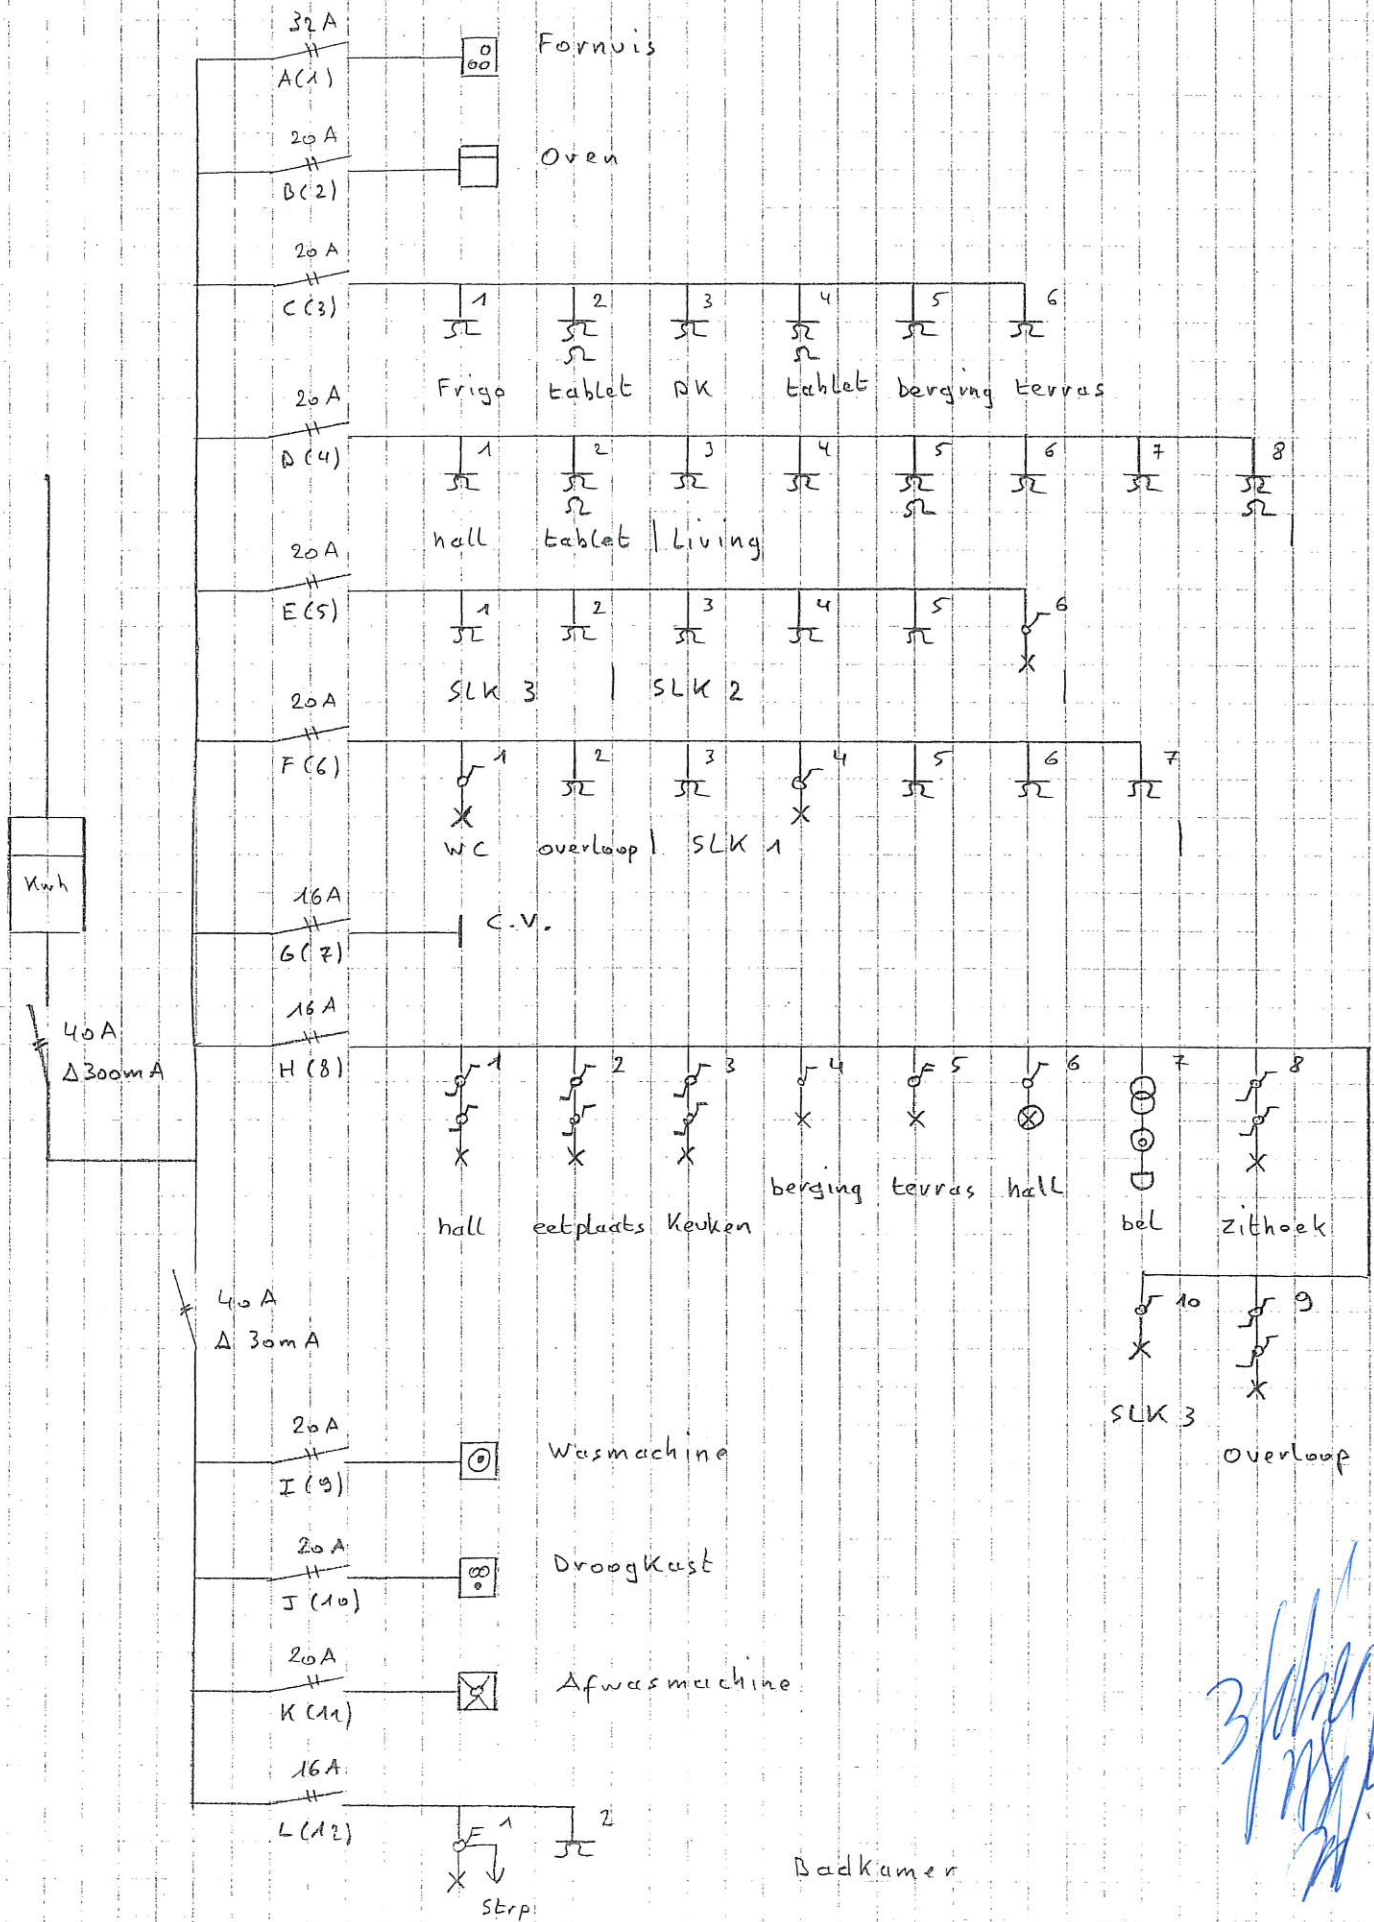 32A
A(1)
Fornuis
20A
B(2)
Oven
20A
C(3)
1 2 3 4 5 6
Frigo tablet DK tablet berging terras
20A
D(4)
1 2 3 4 5 6 7 8
hall tablet | Living
20A
E(5)
1 2 3 4 5 6
SLK 3 | SLK 2
20A
F(6)
1 2 3 4 5 6 7
WC overloop | SLK 1
Kwh
16A
G(7)
C.V.
40A
Δ300mA
16A
H(8)
1 2 3 4 5 6 7 8
berging terras hall
hall eetplaats Keuken bel zithoek
40A
Δ 30mA
10 9
SLK 3
overloop
20A
I(9)
Wasmachine
20A
J(10)
Droogkast
20A
K(11)
Afwasmachine
16A
L(12)
1 2
Strp
Badkamer